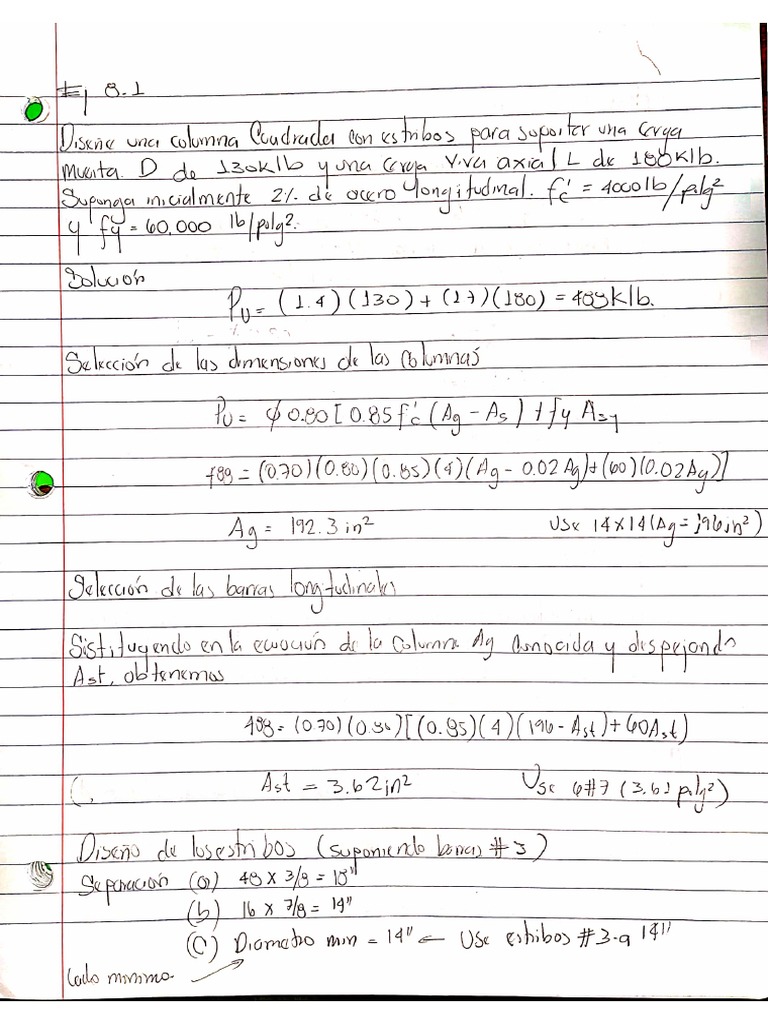 Ej 8.1
Diseñe una columna Cuadrada con estribos para soportar una carga
muerta. D de 130klb y una carga viva axial L de 180klb.
Suponga inicialmente 2% de acero longitudinal. f'c = 4000 lb/plg²
y fy = 60,000 lb/polg².
Solución
Pu = (1.4)(130) + (1.7)(180) = 489klb.
Selección de las dimensiones de las columnas
Pu = φ 0.80 [0.85 f'c (Ag - As) + fy Ast
489 = (0.70)(0.80)(0.85)(4)(Ag - 0.02 Ag) + (60)(0.02Ag)]
Ag = 192.3 in² Use 14x14 (Ag = 196in²)
Selección de las barras longitudinales
Sistituyendo en la ecuación de la columna Ag conocida y despejando
Ast, obtenemos
489 = (0.70)(0.80)[(0.85)(4)(196 - Ast) + 60Ast)
Ast = 3.62 in² Use 6#7 (3.61 pulg²)
Diseño de los estribos (suponiendo barras #3)
Separación (a) 48 x 3/8 = 18"
(b) 16 x 7/8 = 14"
(C) Diametro min = 14" ← Use estribos #3 a 14"
Lado minimo.